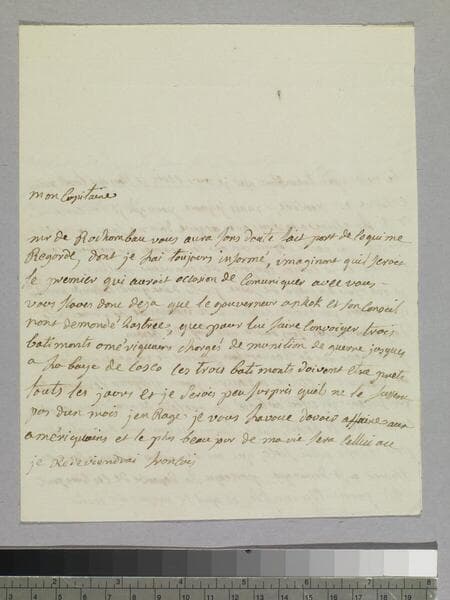 mon Capitaine
mr de Rochambau vous aura sans doute fait part de ce qui me
Regarde, dont je l'ai toujours informé, imaginant qu'il seroit
le premier qui auroit occasion de Comuniquer avec vous.
vous savez donc deja que le gouverneur ankok et son Conseil
m'ont demandé, que pour leur faire Convoiyer trois
batiments amériquains chargés de munition de guerre jusques
a la baye de Casco les trois batiments doivent etre prets
touts les jours et je serois peu surpris qu'ils ne le fussent
pas d'un mois j'enRage je vous l'avoue d'avoir affaire aux
amériquains et le plus beau jour de ma vie sera celui ou
je Redeviendrai francois
0 1 2 3 4 5 6 7 8
3 4 5 6 7 8 9 10 11 12 13 14 15 16 17 18 19